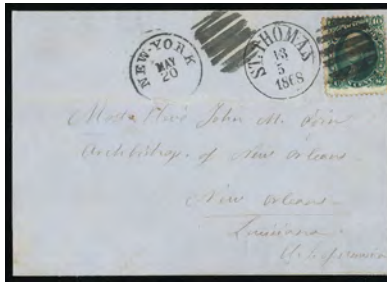 NEW-YORK
MAY
20
ST. THOMAS
13
5
1868
John M.
Archbishop of New Orleans
New Orleans
Louisiana